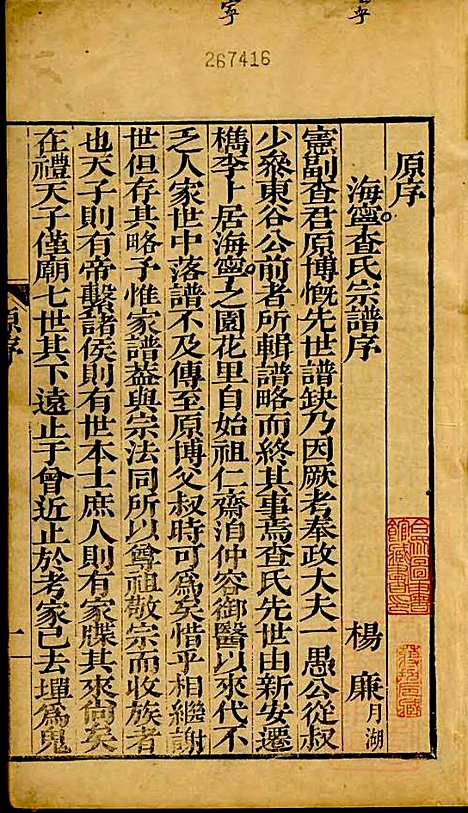 寧
寧
267416
原序
海寧查氏宗譜序
楊廉月湖
憲副查君原博慨先世譜缺乃因厥考奉政大夫一愚公從叔
少參東谷公前者所輯譜略而終其事焉查氏先世由新安遷
檇李卜居海寧之園花里自始祖仁齋洎仲容御醫以來代不
乏人家世中落譜不及傳至原博父叔時可為矣惜乎相繼謝
世但存其略予惟家譜蓋與宗法同所以尊祖敬宗而收族者
也天子則有帝繫諸侯則有世本士庶人則有家牒其來尙矣
在禮天子僅廟七世其下遠止于曾近止於考家已去墠為鬼
原序
一